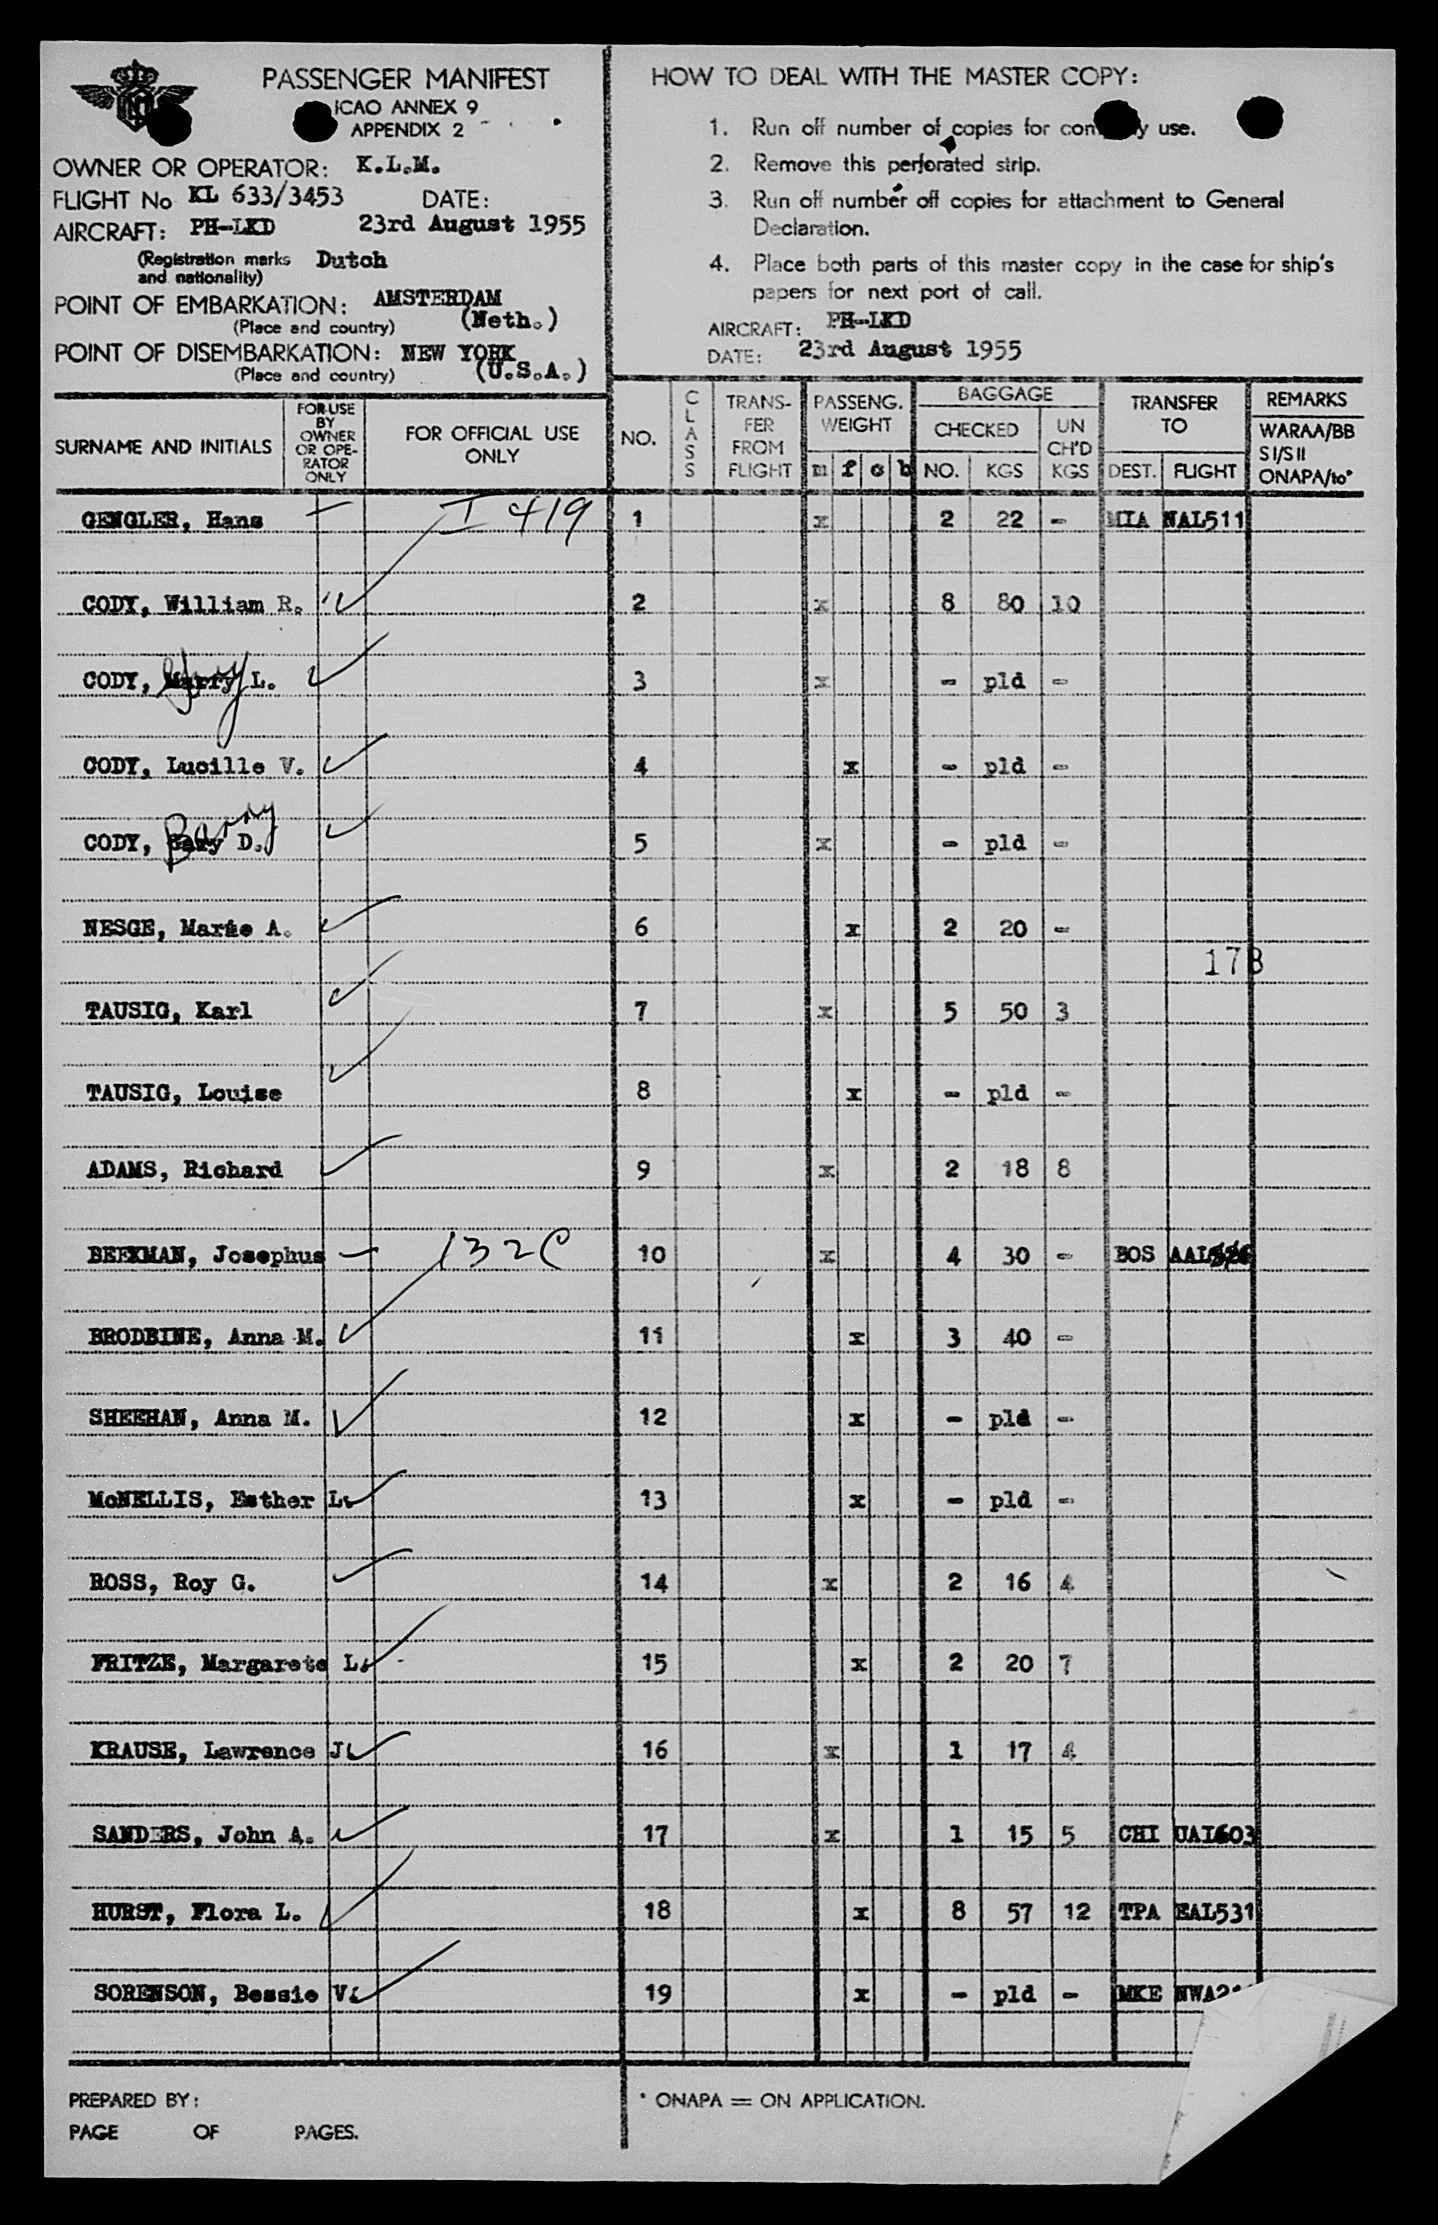 PASSENGER MANIFEST
ICAO ANNEX 9
APPENDIX 2
OWNER OR OPERATOR: K.L.M.
FLIGHT No KL 633/3453 DATE:
AIRCRAFT: PH-LKD 23rd August 1955
(Registration marks and nationality) Dutch
POINT OF EMBARKATION: AMSTERDAM
(Place and country) (Neth.)
POINT OF DISEMBARKATION: NEW YORK
(Place and country) (U.S.A.)
HOW TO DEAL WITH THE MASTER COPY:
1. Run off number of copies for company use.
2. Remove this perforated strip.
3. Run off number off copies for attachment to General
Declaration.
4. Place both parts of this master copy in the case for ship's
papers for next port of call.
AIRCRAFT: PH-LKD
DATE: 23rd August 1955
SURNAME AND INITIALS FOR USE BY OWNER OR OPE- RATOR ONLY FOR OFFICIAL USE ONLY NO. CLASS TRANS- FER FROM FLIGHT PASSENG. WEIGHT m f c b BAGGAGE CHECKED NO. KGS UN CH'D KGS TRANSFER TO DEST. FLIGHT REMARKS WARAA/BB SI/SII ONAPA/to*
GENGLER, Hans I 419 1 x 2 22 - MIA NAL511
CODY, William R. 2 x 8 80 10
CODY, L. 3 x - pld -
CODY, Lucille V. 4 x - pld -
CODY, Gary Barry D. 5 x - pld -
NESGE, Marie A. 6 x 2 20 -
178
TAUSIG, Karl 7 x 5 50 3
TAUSIG, Louise 8 x - pld -
ADAMS, Richard 9 x 2 18 8
BEEKMAN, Josephus 132C 10 x 4 30 - BOS AAL
BRODEINE, Anna M. 11 x 3 40 -
SHEEHAN, Anna M. 12 x - pld -
McNELLIS, Esther L. 13 x - pld -
ROSS, Roy G. 14 x 2 16 4
FRITZE, Margarete L. 15 x 2 20 7
KRAUSE, Lawrence J. 16 x 1 17 4
SANDERS, John A. 17 x 1 15 5 CHI UAL603
HURST, Flora L. 18 x 8 57 12 TPA EAL531
SORENSON, Bessie V. 19 x - pld - MKE
PREPARED BY:
PAGE OF PAGES.
* ONAPA = ON APPLICATION.